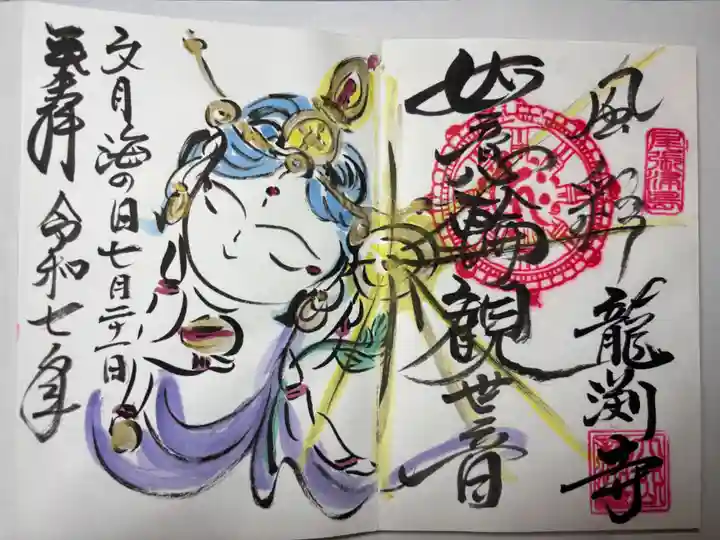 尾張津島
如意輪観世音
龍渕寺
文月海の日七月二十一日
奉拝 令和七年